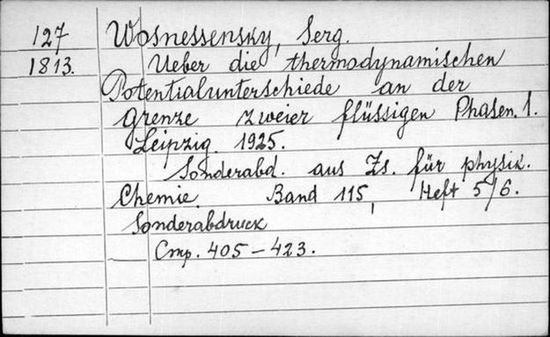 127 Wosnessensky, Serg.
1813. Ueber die thermodynamischen
Potentialunterschiede an der
grenze zweier flüssigen Phasen. 1.
Leipzig. 1925.
Sonderabd. aus Zs. für physik.
Chemie. Band 115, Heft 5/6.
Sonderabdruck
Стр. 405-423.